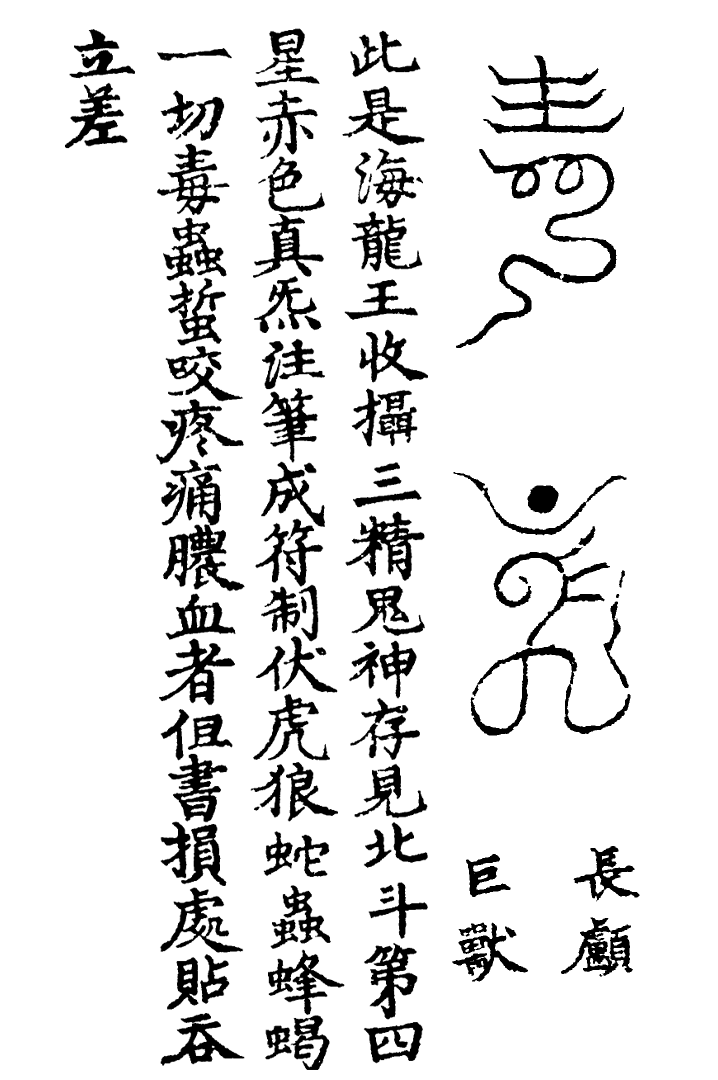 長顱
巨獸
此是海龍王收攝三精鬼神存見北斗第四
星赤色真炁注筆成符制伏虎狼蛇蟲蜂蝎
一切毒蟲蜇咬疼痛膿血者但書損處貼吞
立差